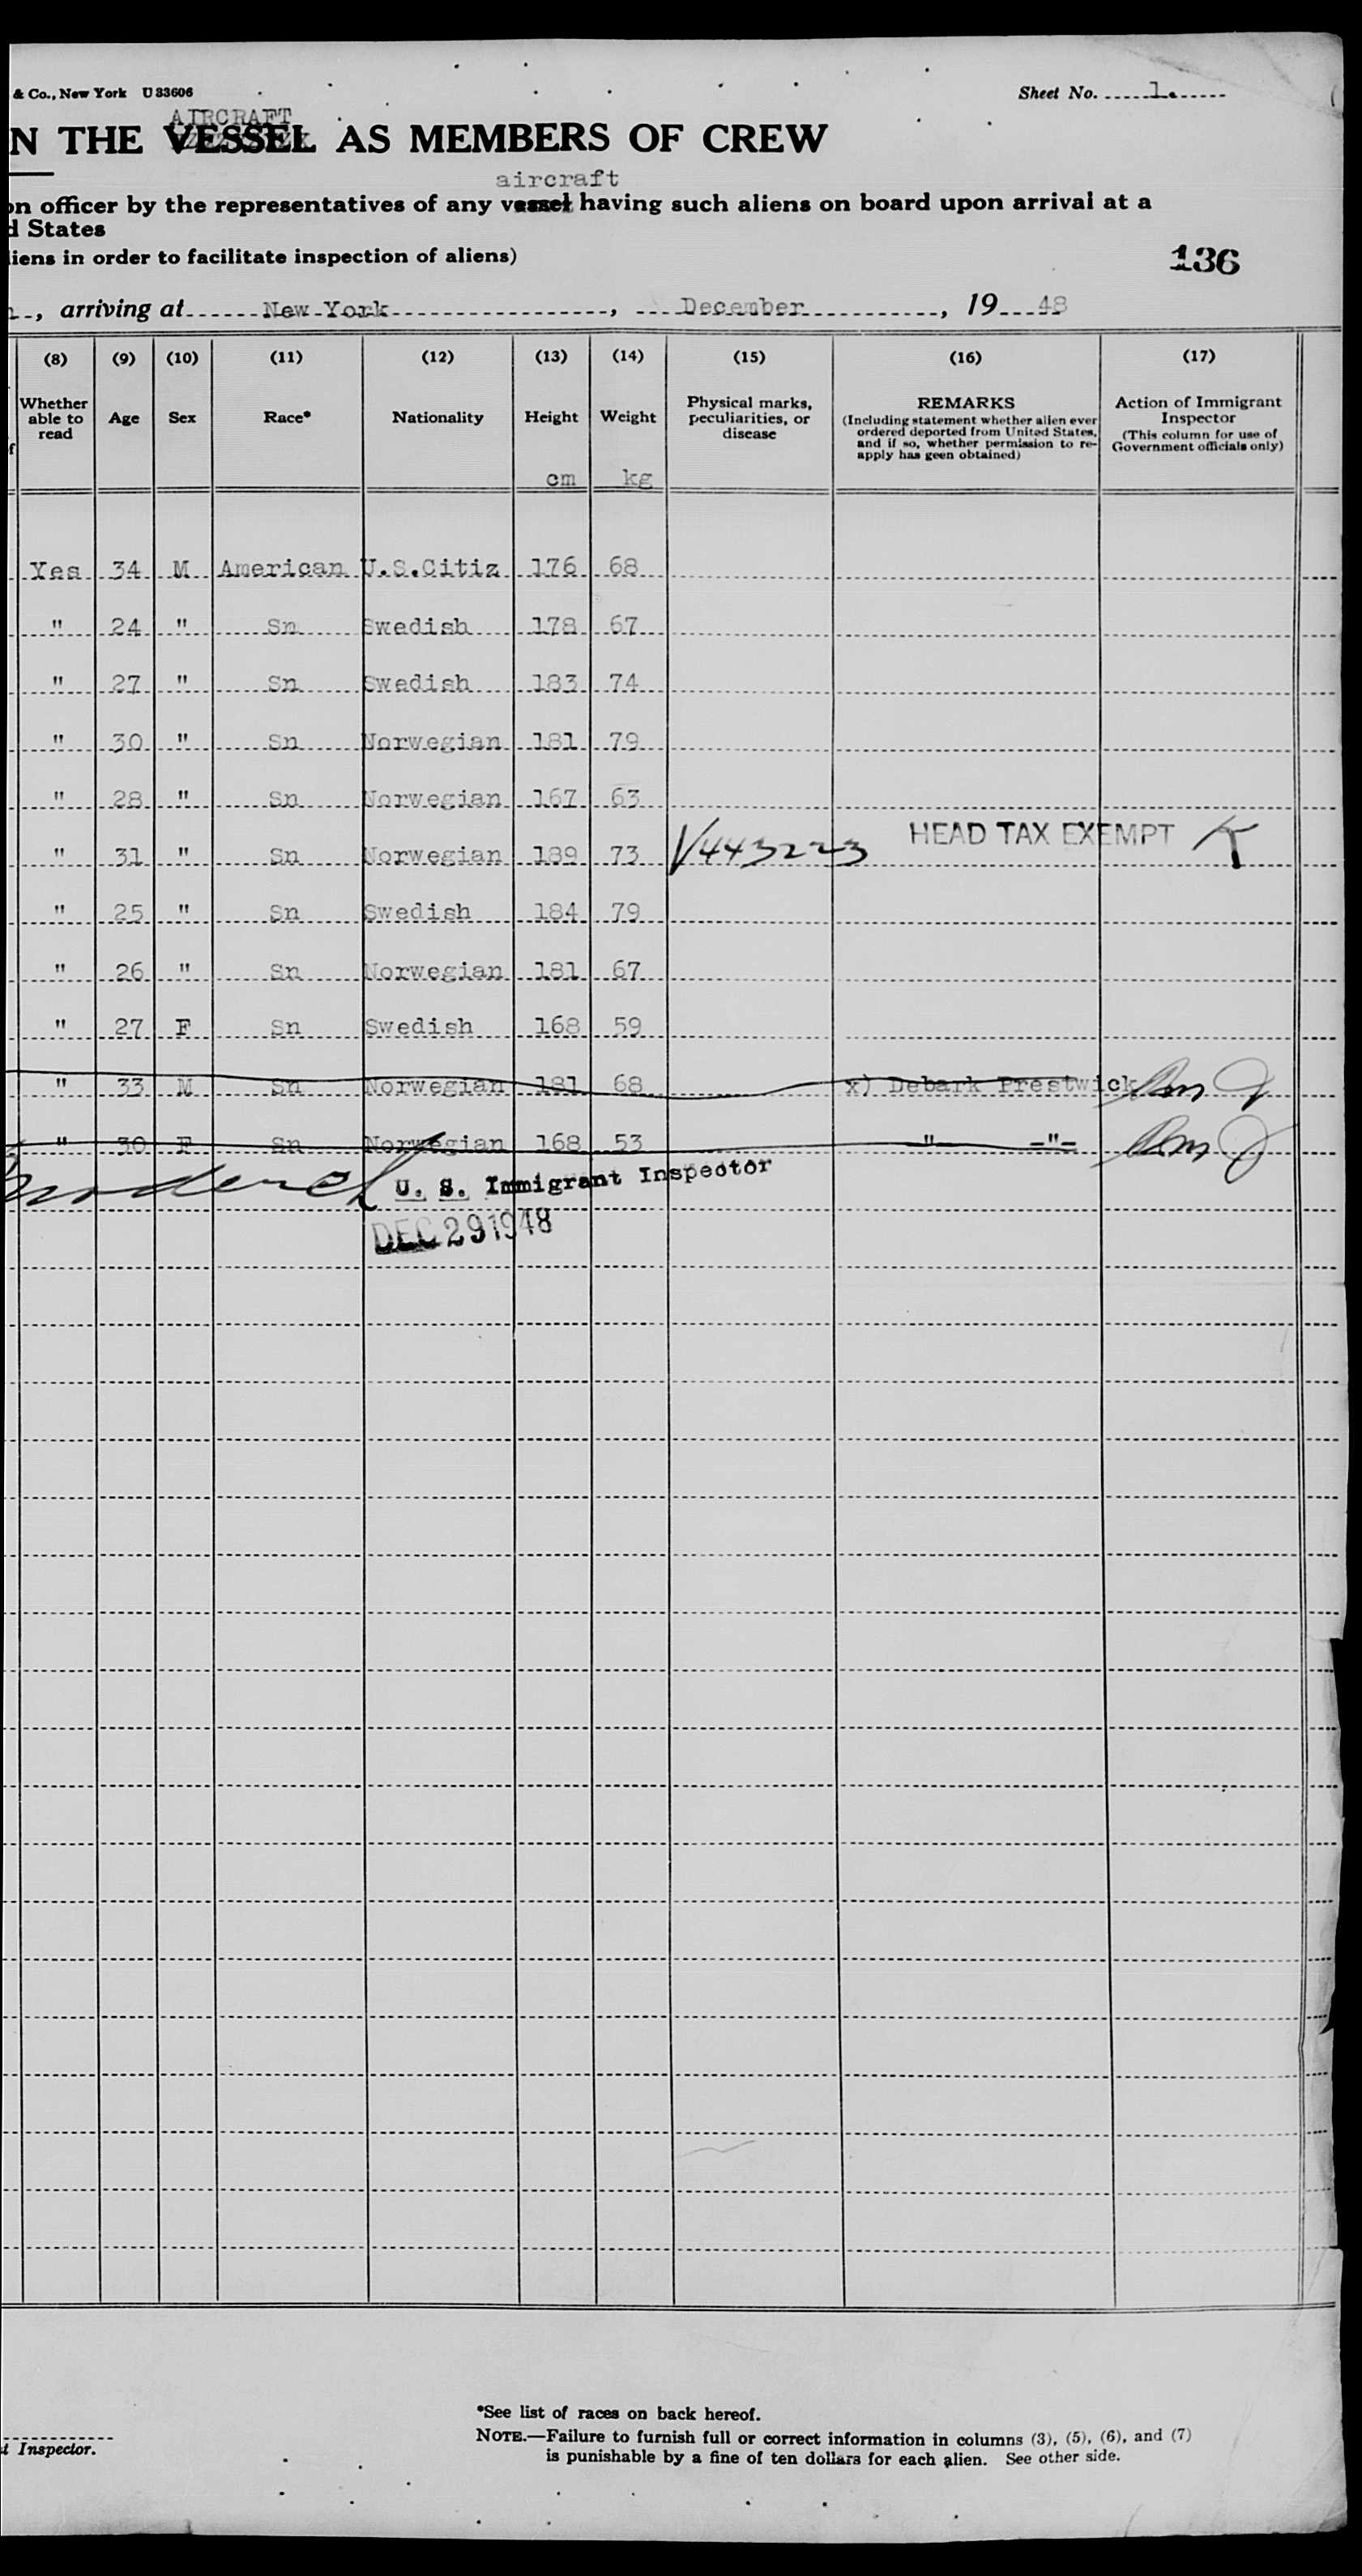 & Co., New York U 83606
Sheet No. 1.
AIRCRAFT
N THE VESSEL AS MEMBERS OF CREW
aircraft
on officer by the representatives of any vessel having such aliens on board upon arrival at a
d States
liens in order to facilitate inspection of aliens)
136
, arriving at New York, December, 19 48
(8) (9) (10) (11) (12) (13) (14) (15) (16) (17)
Whether able to read Age Sex Race* Nationality Height Weight Physical marks, peculiarities, or disease REMARKS (Including statement whether alien ever ordered deported from United States, and if so, whether permission to re-apply has geen obtained) Action of Immigrant Inspector (This column for use of Government officials only)
cm kg
Yes 34 M American U.S.Citiz 176 68
" 24 " Sn Swedish 178 67
" 27 " Sn Swedish 183 74
" 30 " Sn Norwegian 181 79
" 28 " Sn Norwegian 167 63
" 31 " Sn Norwegian 189 73 V443223 HEAD TAX EXEMPT
" 25 " Sn Swedish 184 79
" 26 " Sn Norwegian 181 67
" 27 F Sn Swedish 168 59
" 33 M Sn Norwegian 181 68 x) Debark Prestwick
" 30 F Sn Norwegian 168 53 " -"-
U. S. Immigrant Inspector
DEC 29 1948
*See list of races on back hereof.
NOTE.—Failure to furnish full or correct information in columns (3), (5), (6), and (7)
is punishable by a fine of ten dollars for each alien. See other side.
t Inspector.